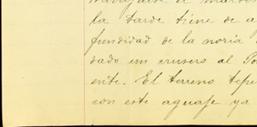 la tarde tiene de a
fundidad de la noria
dado un crucero al Po
ente. El terreno tepe
con este aguaje ya